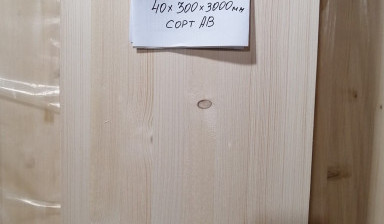 40х300х3000мм
СОРТ АВ